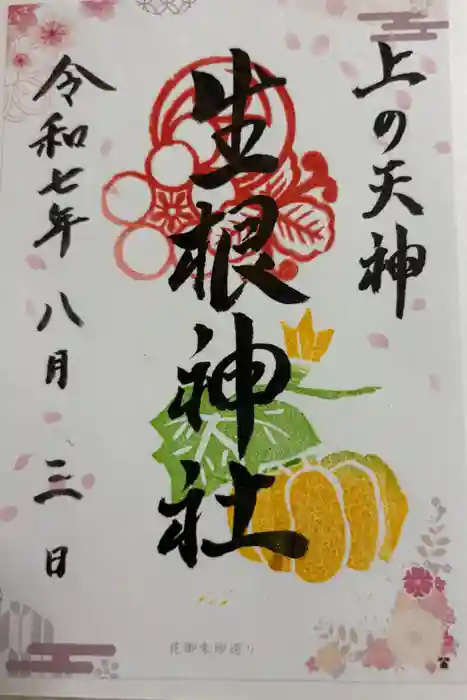 上の天神
生根神社
令和七年八月三日
花御朱印巡り